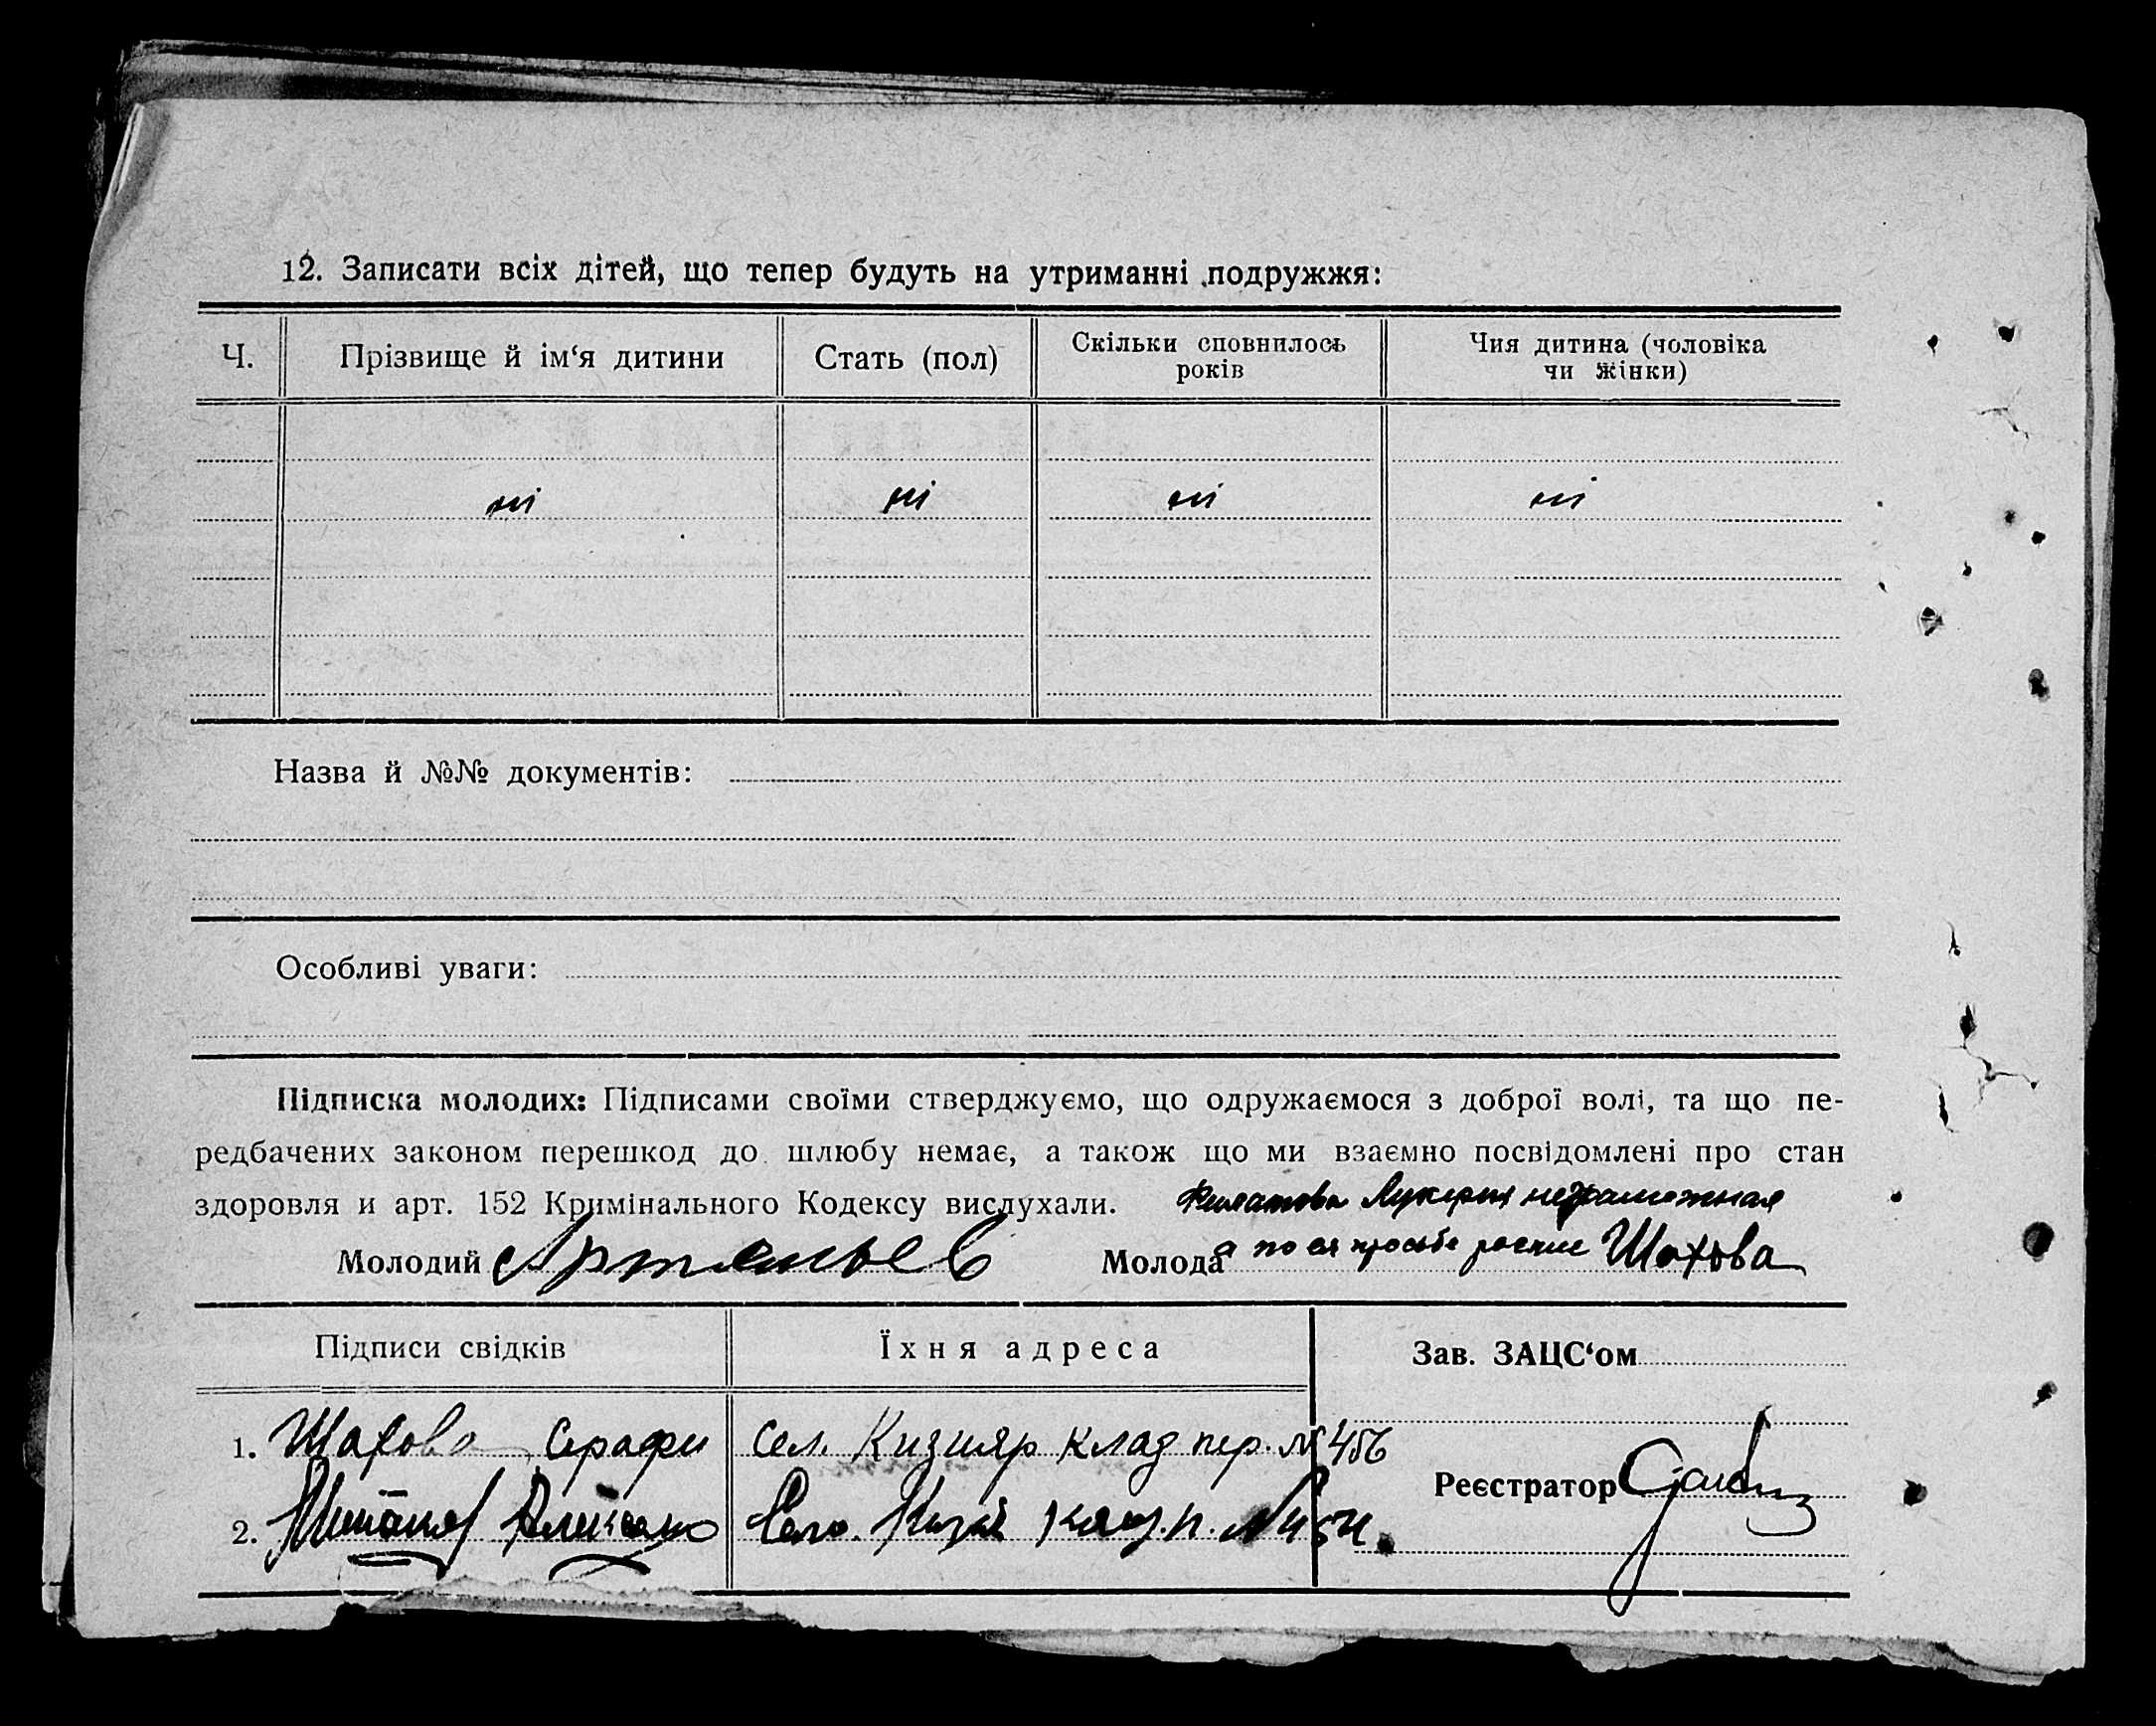 12. Записати всіх дітей, що тепер будуть на утриманні подружжя:
Ч. Прізвище й ім‘я дитини Стать (пол) Скільки сповнилось років Чия дитина (чоловіка чи жінки)
ні ні ні ні
Назва й №№ документів:
Особливі уваги:
Підписка молодих: Підписами своїми стверджуємо, що одружаємося з доброї волі, та що пе-
редбачених законом перешкод до шлюбу немає, а також що ми взаємно посвідомлені про стан
здоровля и арт. 152 Кримінального Кодексу вислухали. Филатова Лукерия
Молодий Артемьев Молода а по ея просьбе Шахова
Підписи свідків Їхня адреса Зав. ЗАЦС‘ом
1. Шахова Серафи Сел. Кизияр клад пер. № 456
Реєстратор
2. Село. Кизи п. №